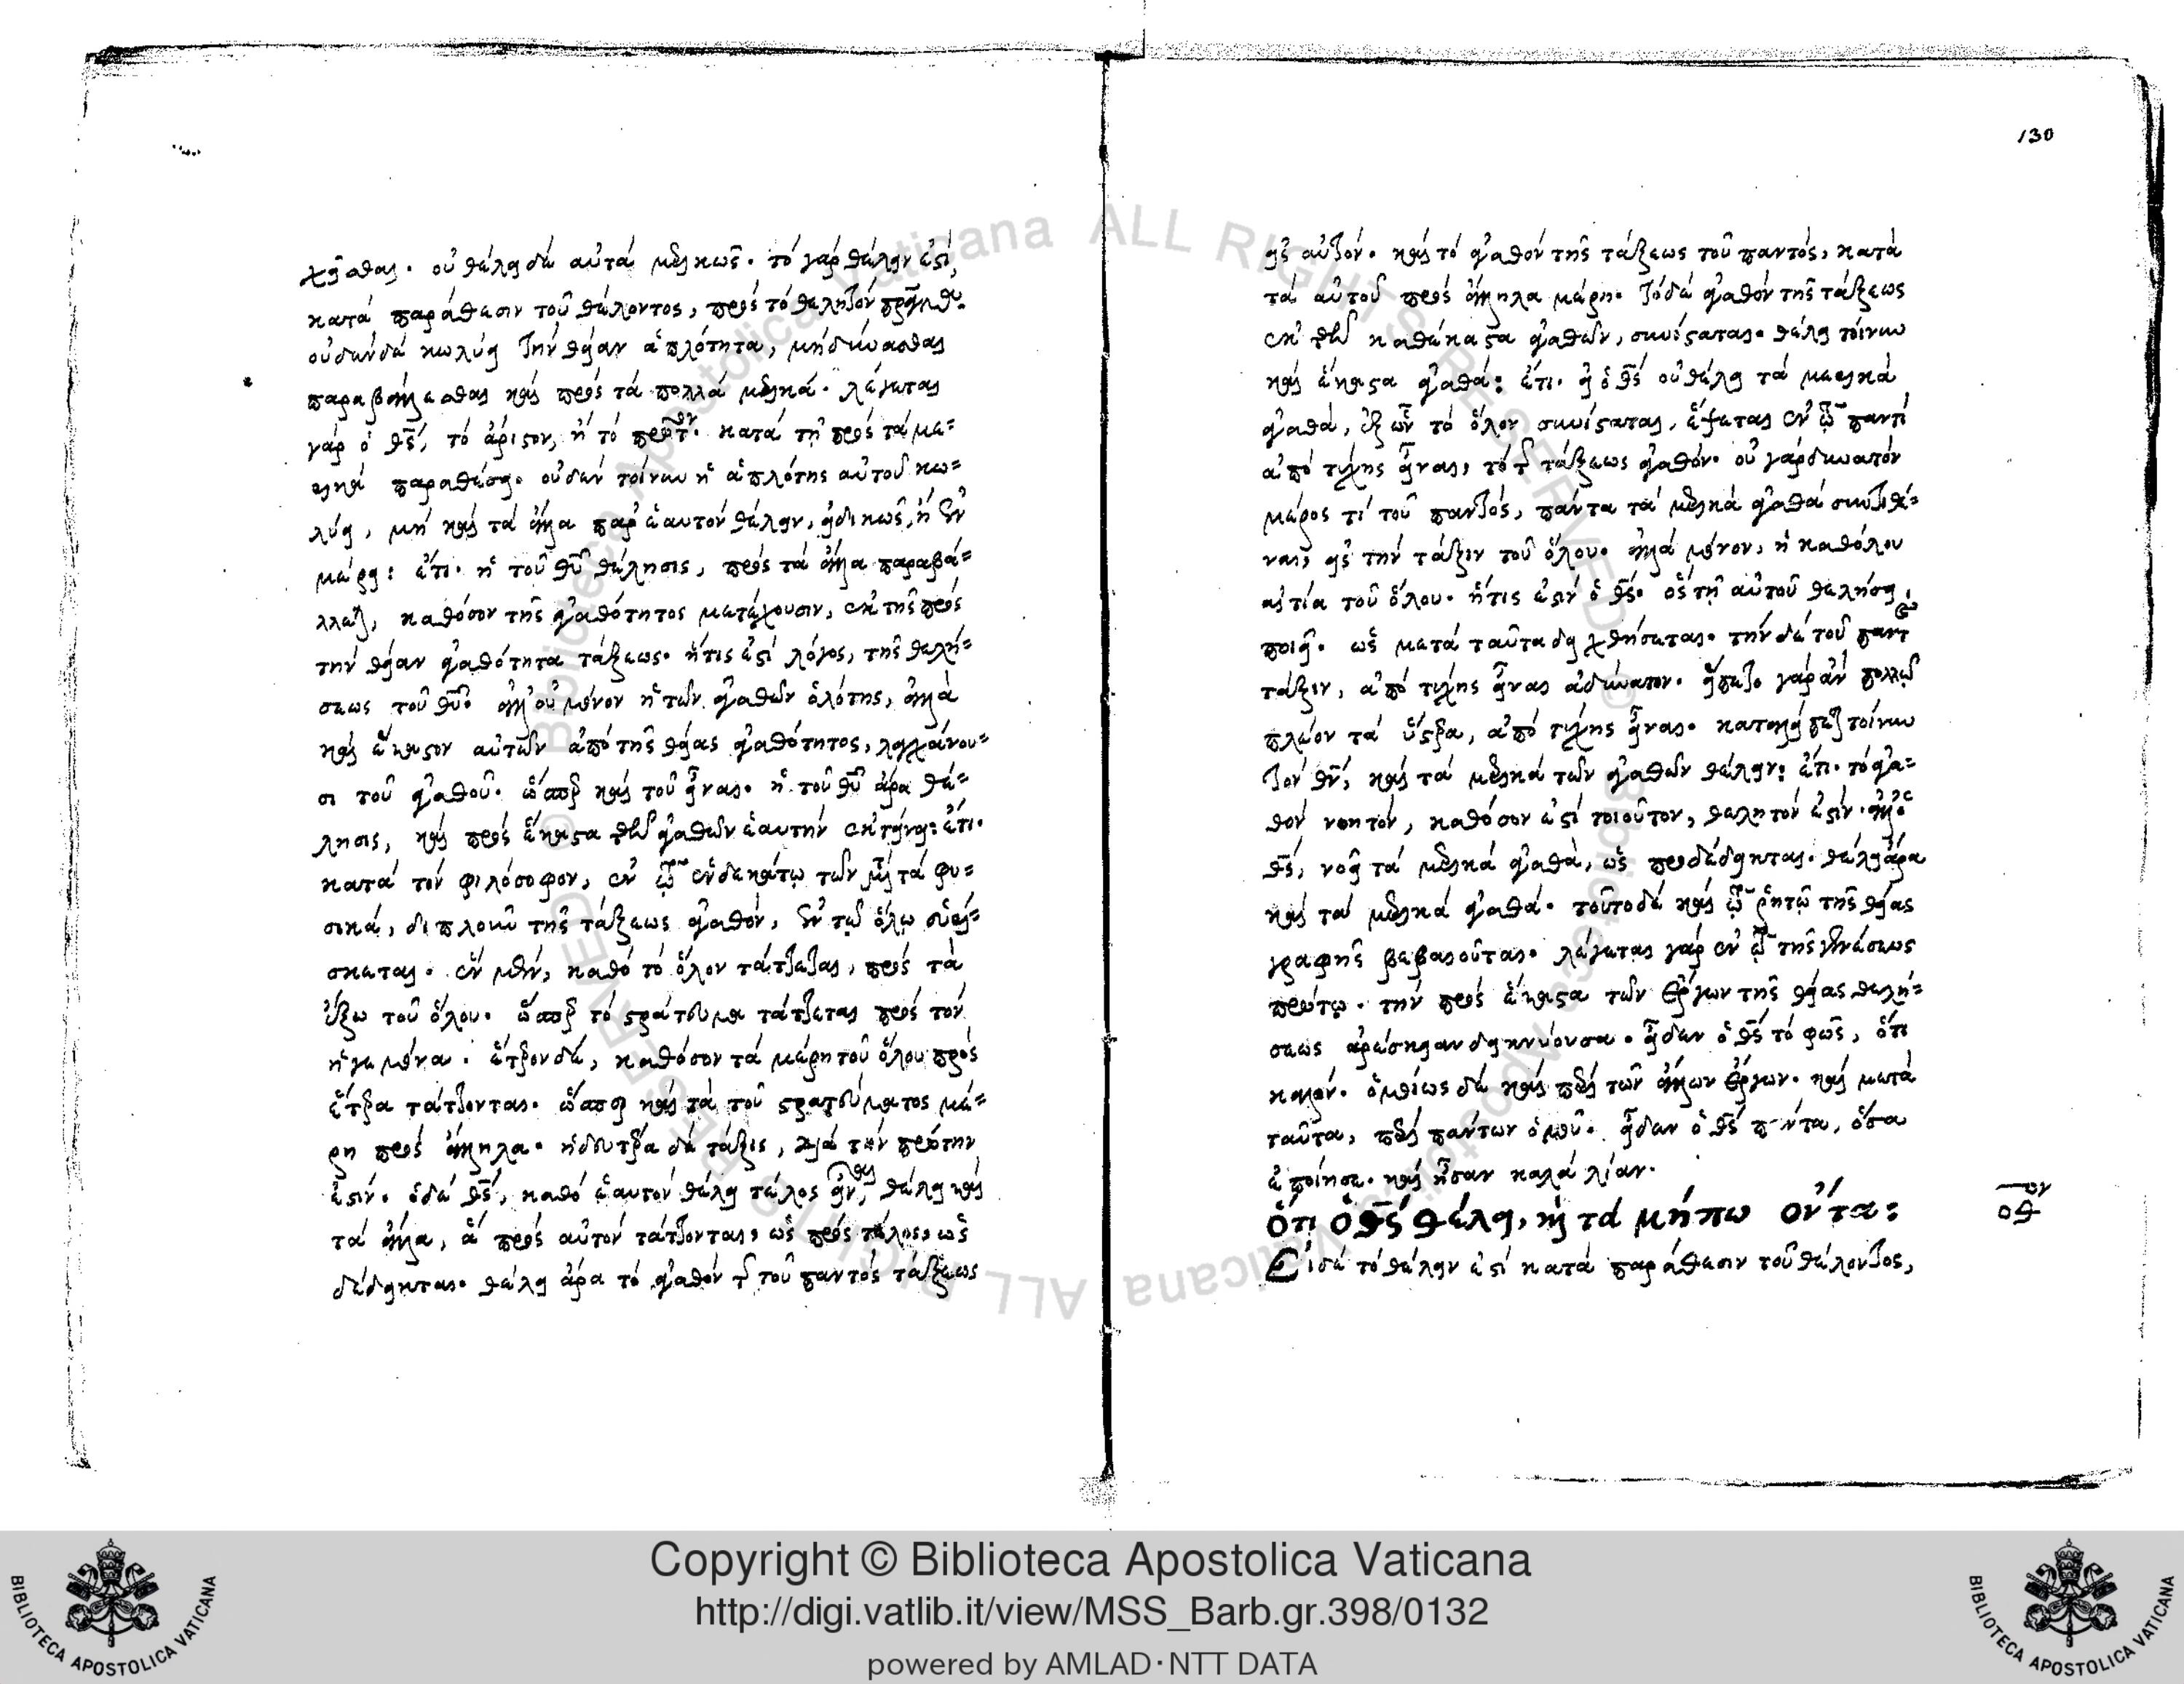 130
χεῖσθαι. οὐ θέλει δὲ αὐτὰ μερικῶς. τὸ γὰρ θέλειν ἐστὶ,
κατὰ παράθεσιν τοῦ θέλοντος, πρὸς τὸ θελητὸν
οὐδὲν δὲ κωλύει τὴν θείαν ἁπλότητα, μὴ δύνασθαι
παραβάλλεσθαι καὶ πρὸς τὰ πολλὰ μερικά. λέγεται
γὰρ ὁ θς, τὸ ἄριστον, ἢ τὸ πρῶτον. κατὰ τὴν πρὸς τὰ με=
ρικὰ παραθέσει. οὐδὲν τοίνυν ἡ ἁπλότης αὐτοῦ κω=
λύει, μὴ καὶ τὰ ἄλλα παρ' ἑαυτὸν θέλειν, εἰδικῶς, ἢ ἐν
μέρει: ἔτι. ἡ τοῦ θυ θέλησις, πρὸς τὰ ἄλλα παραβά=
λλεται, καθόσον τῆς ἀγαθότητος μετέχουσιν, ἐκ τῆς πρὸς
τὴν θείαν ἀγαθότητα τάξεως. ἥτις ἐστὶ λόγος, τῆς θελή=
σεως τοῦ θυ. ἀλλ' οὐ μόνον ἡ τῶν ἀγαθῶν ὁλότης, ἀλλὰ
καὶ ἕκαστον αὐτῶν ἀπὸ τῆς θείας ἀγαθότητος, λαγχάνου=
σι τοῦ ἀγαθοῦ. ὥσπερ καὶ τοῦ εἶναι. ἡ τοῦ θυ ἄρα θέ=
λησις, καὶ πρὸς ἕκαστα τῶν ἀγαθῶν ἑαυτὴν ἐκτείνει: ἔτι.
κατὰ τὸν φιλόσοφον, ἐν τῷ ἑνδεκάτῳ τῶν μετὰ τὰ φυ=
σικὰ, διπλοῦν τῆς τάξεως ἀγαθὸν, ἐν τῷ ὅλῳ εὑρί=
σκεται. ἓν μὲν, καθὸ τὸ ὅλον τάττεται, πρὸς τὰ
ἔξω τοῦ ὅλου. ὥσπερ τὸ στράτευμα τάττεται πρὸς τὸν
ἡγεμόνα. ἕτερον δὲ, καθόσον τὰ μέρη τοῦ ὅλου πρὸς
ἕτερα τάττονται. ὥσπερ καὶ τὰ τοῦ στρατεύματος μέ=
ρη πρὸς ἄλληλα. ἡ δευτέρα δὲ τάξις, διὰ τὴν πρώτην
ἐστίν. ὁ δὲ θς, καθὸ ἑαυτὸν θέλει τέλος εἶναι, θέλει καὶ
τὰ ἄλλα, ἃ πρὸς αὐτὸν τάττονται, ὡς πρὸς τέλος, ὡς
δέδεικται. θέλει ἄρα τὸ ἀγαθὸν τῆς τοῦ παντὸς τάξεως
εἰς αὐτὸν. καὶ τὸ ἀγαθὸν τῆς τάξεως τοῦ παντὸς, κατὰ
τὰ αὐτοῦ πρὸς ἄλληλα μέρη. τὸ δὲ ἀγαθὸν τῆς τάξεως
ἐκ τῶν καθέκαστα ἀγαθῶν, συνίσταται. θέλει τοίνυν
καὶ ἕκαστα ἀγαθά: ἔτι. εἰ ὁ θς οὐ θέλει τὰ μερικὰ
ἀγαθὰ, ἐξ ὧν τὸ ὅλον συνίσταται, ἕψεται ἐν τῷ παντὶ
ἀπὸ τύχης εἶναι, τὸ τῆς τάξεως ἀγαθόν. οὐ γὰρ δυνατὸν
μέρος τὶ τοῦ παντὸς, πάντα τὰ μερικὰ ἀγαθὰ συντιθέ=
ναι, εἰς τὴν τάξιν τοῦ ὅλου. ἀλλὰ μόνον, ἡ καθόλου
αἰτία τοῦ ὅλου. ἥτις ἐστὶν ὁ θς. ὃς τῇ αὐτοῦ θελήσει
ποιεῖ. ὡς μετὰ ταῦτα δειχθήσεται. τὴν δὲ τοῦ παντὸς
τάξιν, ἀπὸ τύχης εἶναι ἀδύνατον. εἵπετο γὰρ ἂν πολλῷ
πλέον τὰ ὕστερα, ἀπὸ τύχης εἶναι. καταλείπεται τοίνυν
τὸν θν, καὶ τὰ μερικὰ τῶν ἀγαθῶν θέλειν: ἔτι. τὸ ἀγα=
θὸν νοητὸν, καθόσον ἐστὶ τοιοῦτον, θελητόν ἐστιν. ἀλλ' ὁ
θς, νοεῖ τὰ μερικὰ ἀγαθὰ, ὡς προδέδεικται. θέλει ἄρα
καὶ τὰ μερικὰ ἀγαθά. τοῦτο δὲ καὶ τῷ ῥητῷ τῆς θείας
γραφῆς βεβαιοῦται. λέγεται γὰρ ἐν τῷ τῆς γενέσεως
πρώτῳ. τὴν πρὸς ἕκαστα τῶν ἔργων τῆς θείας θελή=
σεως ἀρέσκειαν δεικνύουσα. εἶδεν ὁ θς τὸ φῶς, ὅτι
καλόν. ὁμοίως δὲ καὶ περὶ τῶν ἄλλων ἔργων. καὶ μετὰ
ταῦτα, περὶ πάντων ὁμοῦ. εἶδεν ὁ θς πάντα, ὅσα
ἐποίησε. καὶ ἦσαν καλὰ λίαν.
ὅτι ὁ θς θέλει, καὶ τὰ μήπω ὄντα:
οθον
Εἰ δὲ τὸ θέλειν ἐστὶ κατὰ παράθεσιν τοῦ θέλοντος,
Copyright © Biblioteca Apostolica Vaticana
http://digi.vatlib.it/view/MSS_Barb.gr.398/0132
powered by AMLAD·NTT DATA
BIBLIOTECA APOSTOLICA VATICANA
BIBLIOTECA APOSTOLICA VATICANA